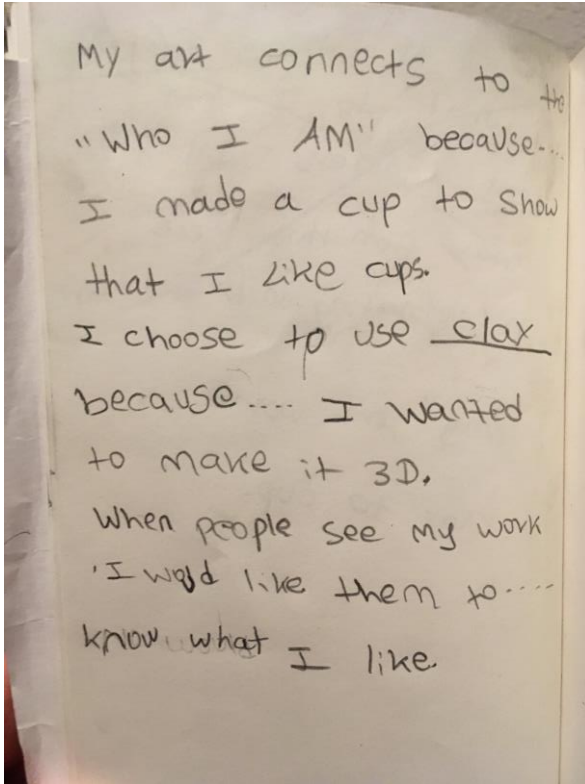 My art connects to the
"Who I AM" because....
I made a cup to show
that I like cups.
I choose to use clax
because.... I wanted
to make it 3D.
When people see my work
I woud like them to.....
know what I like.